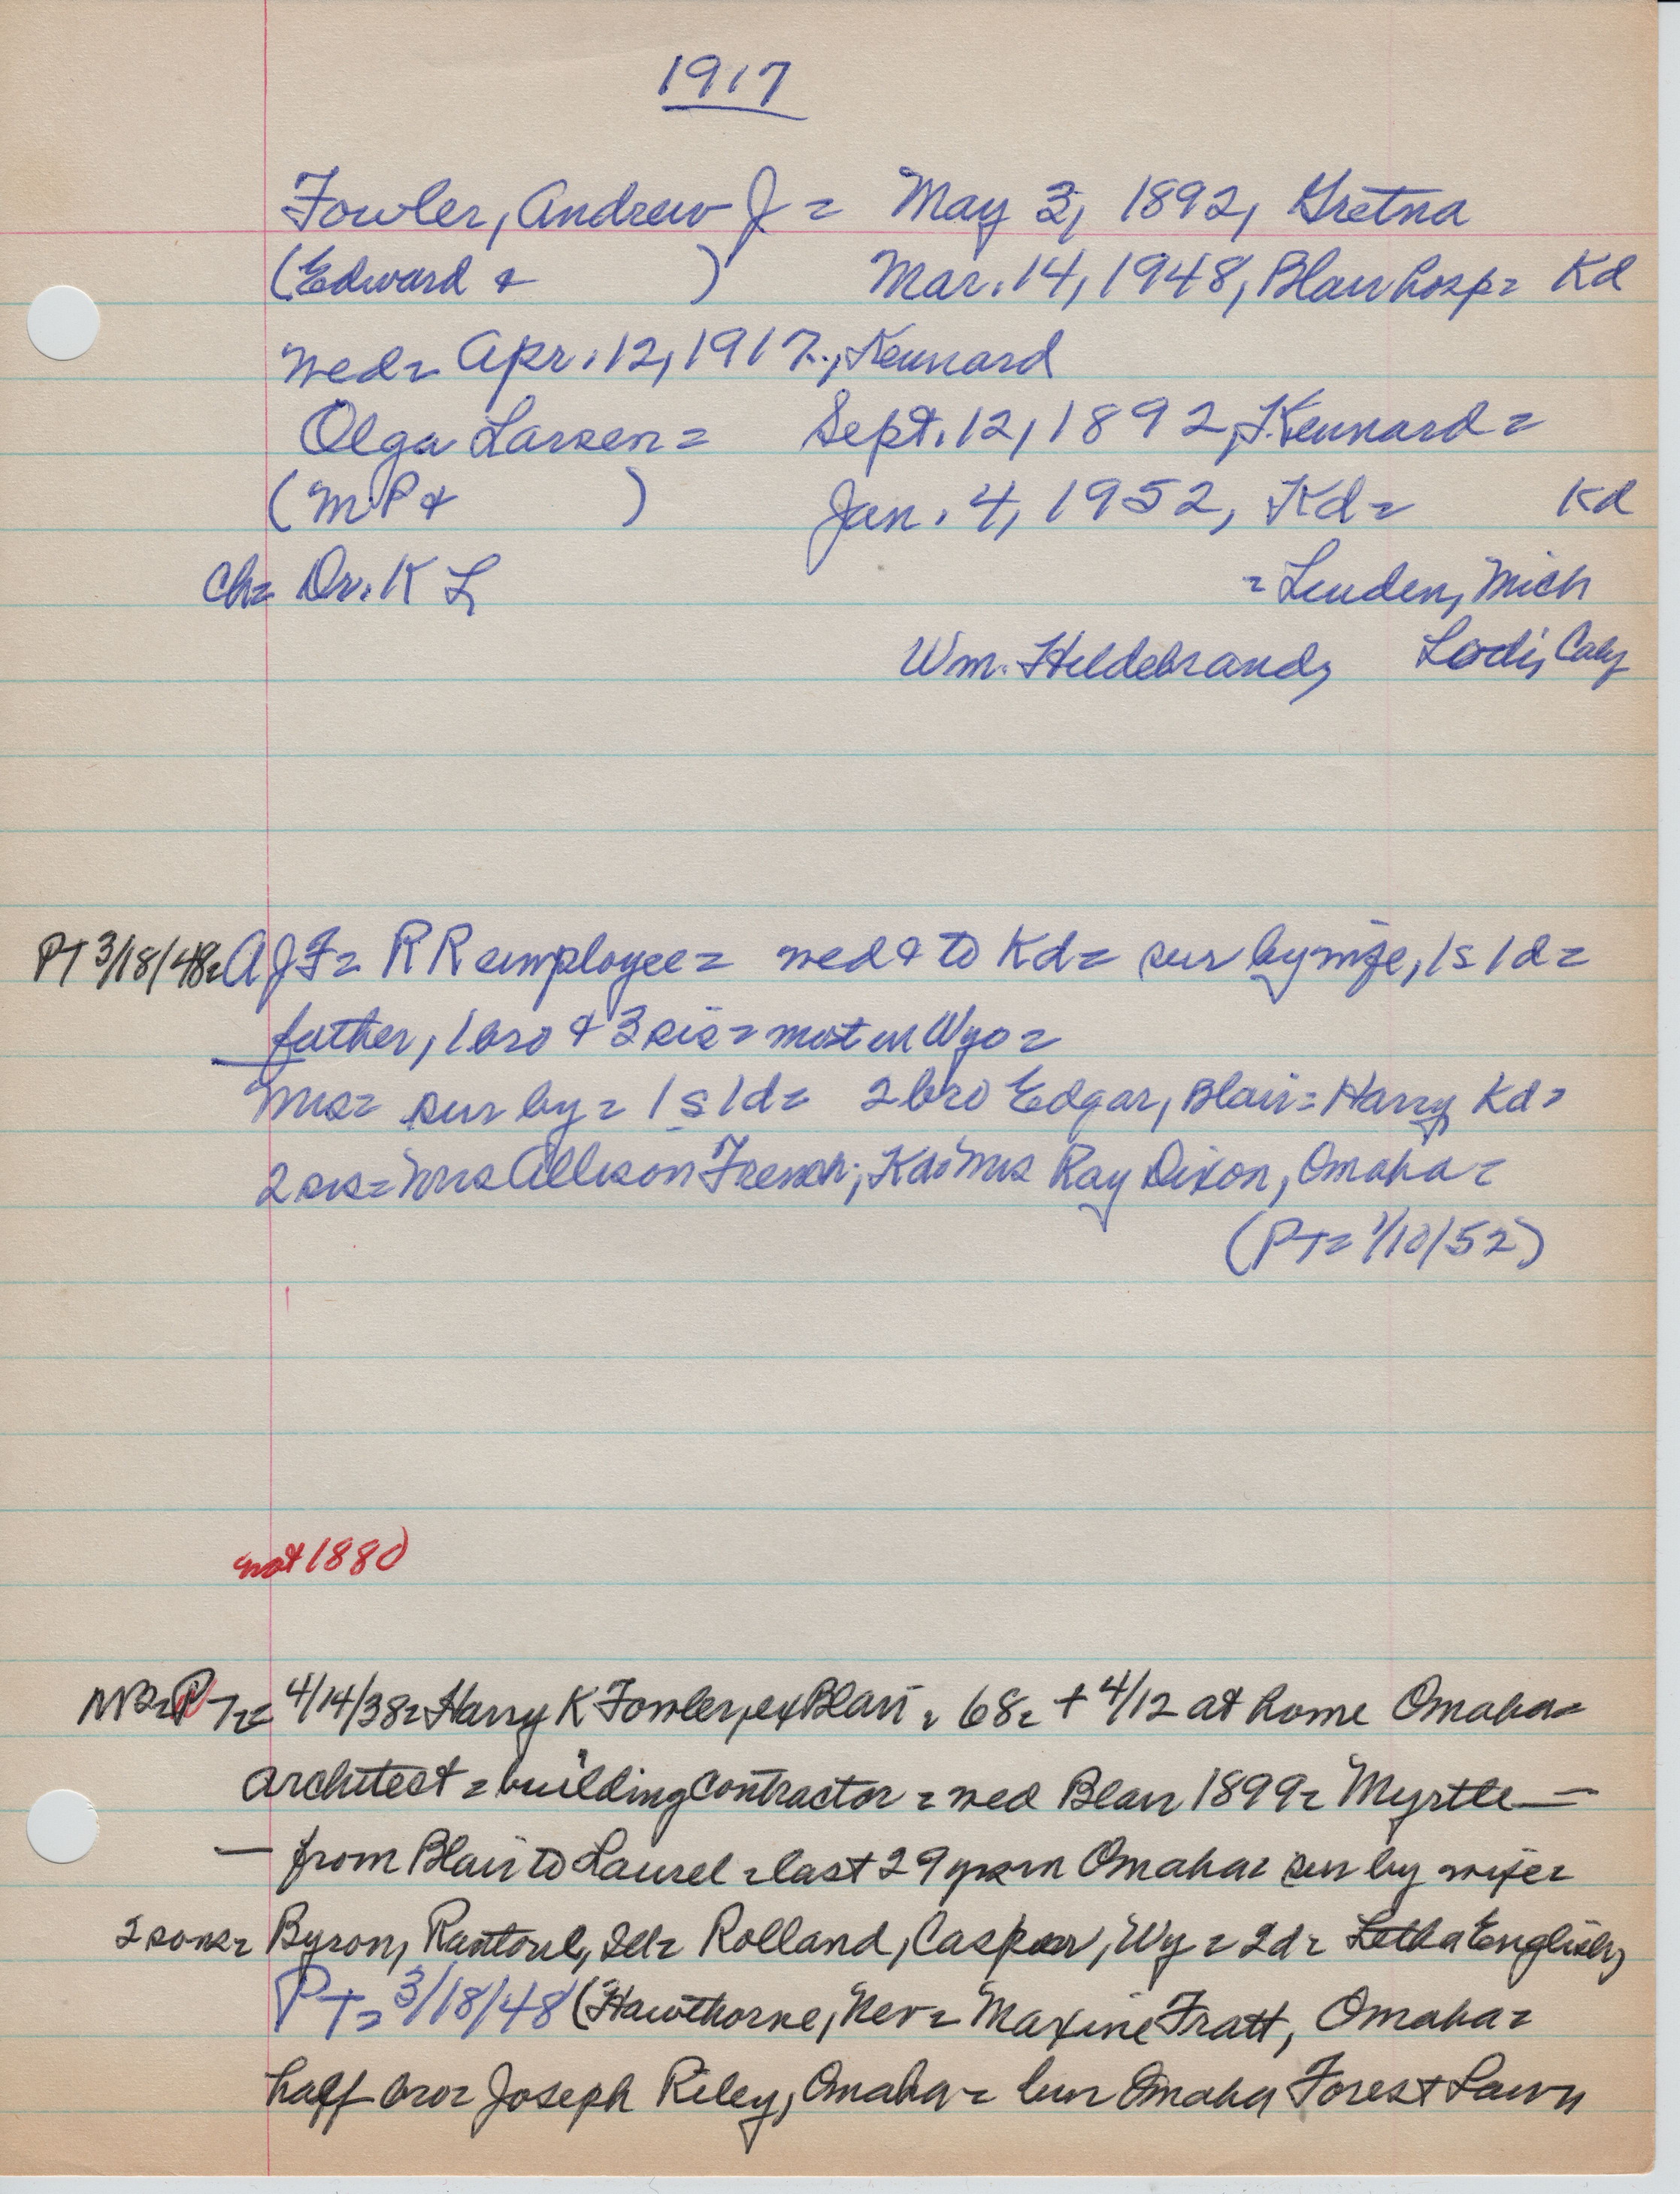 1917
Fowler, Andrew J = May 3, 1892, Gretna
(Edward & ) Mar. 14, 1948, Blair hosp = Kd
wed = Apr. 12, 1917., Kennard
Olga Larsen = Sept. 12, 1892, Kennard =
(M P & ) Jan. 4, 1952, Kd = Kd
Ch = Dr. K L = Linden, Mich
Wm. Hildebrand, Lodi, Calif
PT 3/18/48 = A J F = R R employee = wed & to Kd = sur by wife, 1 s 1 d =
father, 1 bro & 3 sis = most in Wyo =
Mrs = sur by = 1 s 1 d = 2 bro Edgar, Blair = Harry Kd =
2 sis = Mrs Allison French, Kd = Mrs Ray Dixon, Omaha =
(PT = 1/10/52)
not 1880
PT = 4/14/38 = Harry K Fowler, ex Blair, 68 = + 4/12 at home Omaha =
architect = building contractor = wed Blair 1899 = Myrtle —
— from Blair to Laurel = last 29 yrs in Omaha = sur by wife =
2 sons = Byron, Rantoul, Ill = Rolland, Casper, Wy = 2 d = Letha English,
PT = 3/18/48 (Hawthorne, Nev = Maxine Fratt, Omaha =
half bro = Joseph Riley, Omaha = bur Omaha Forest Lawn